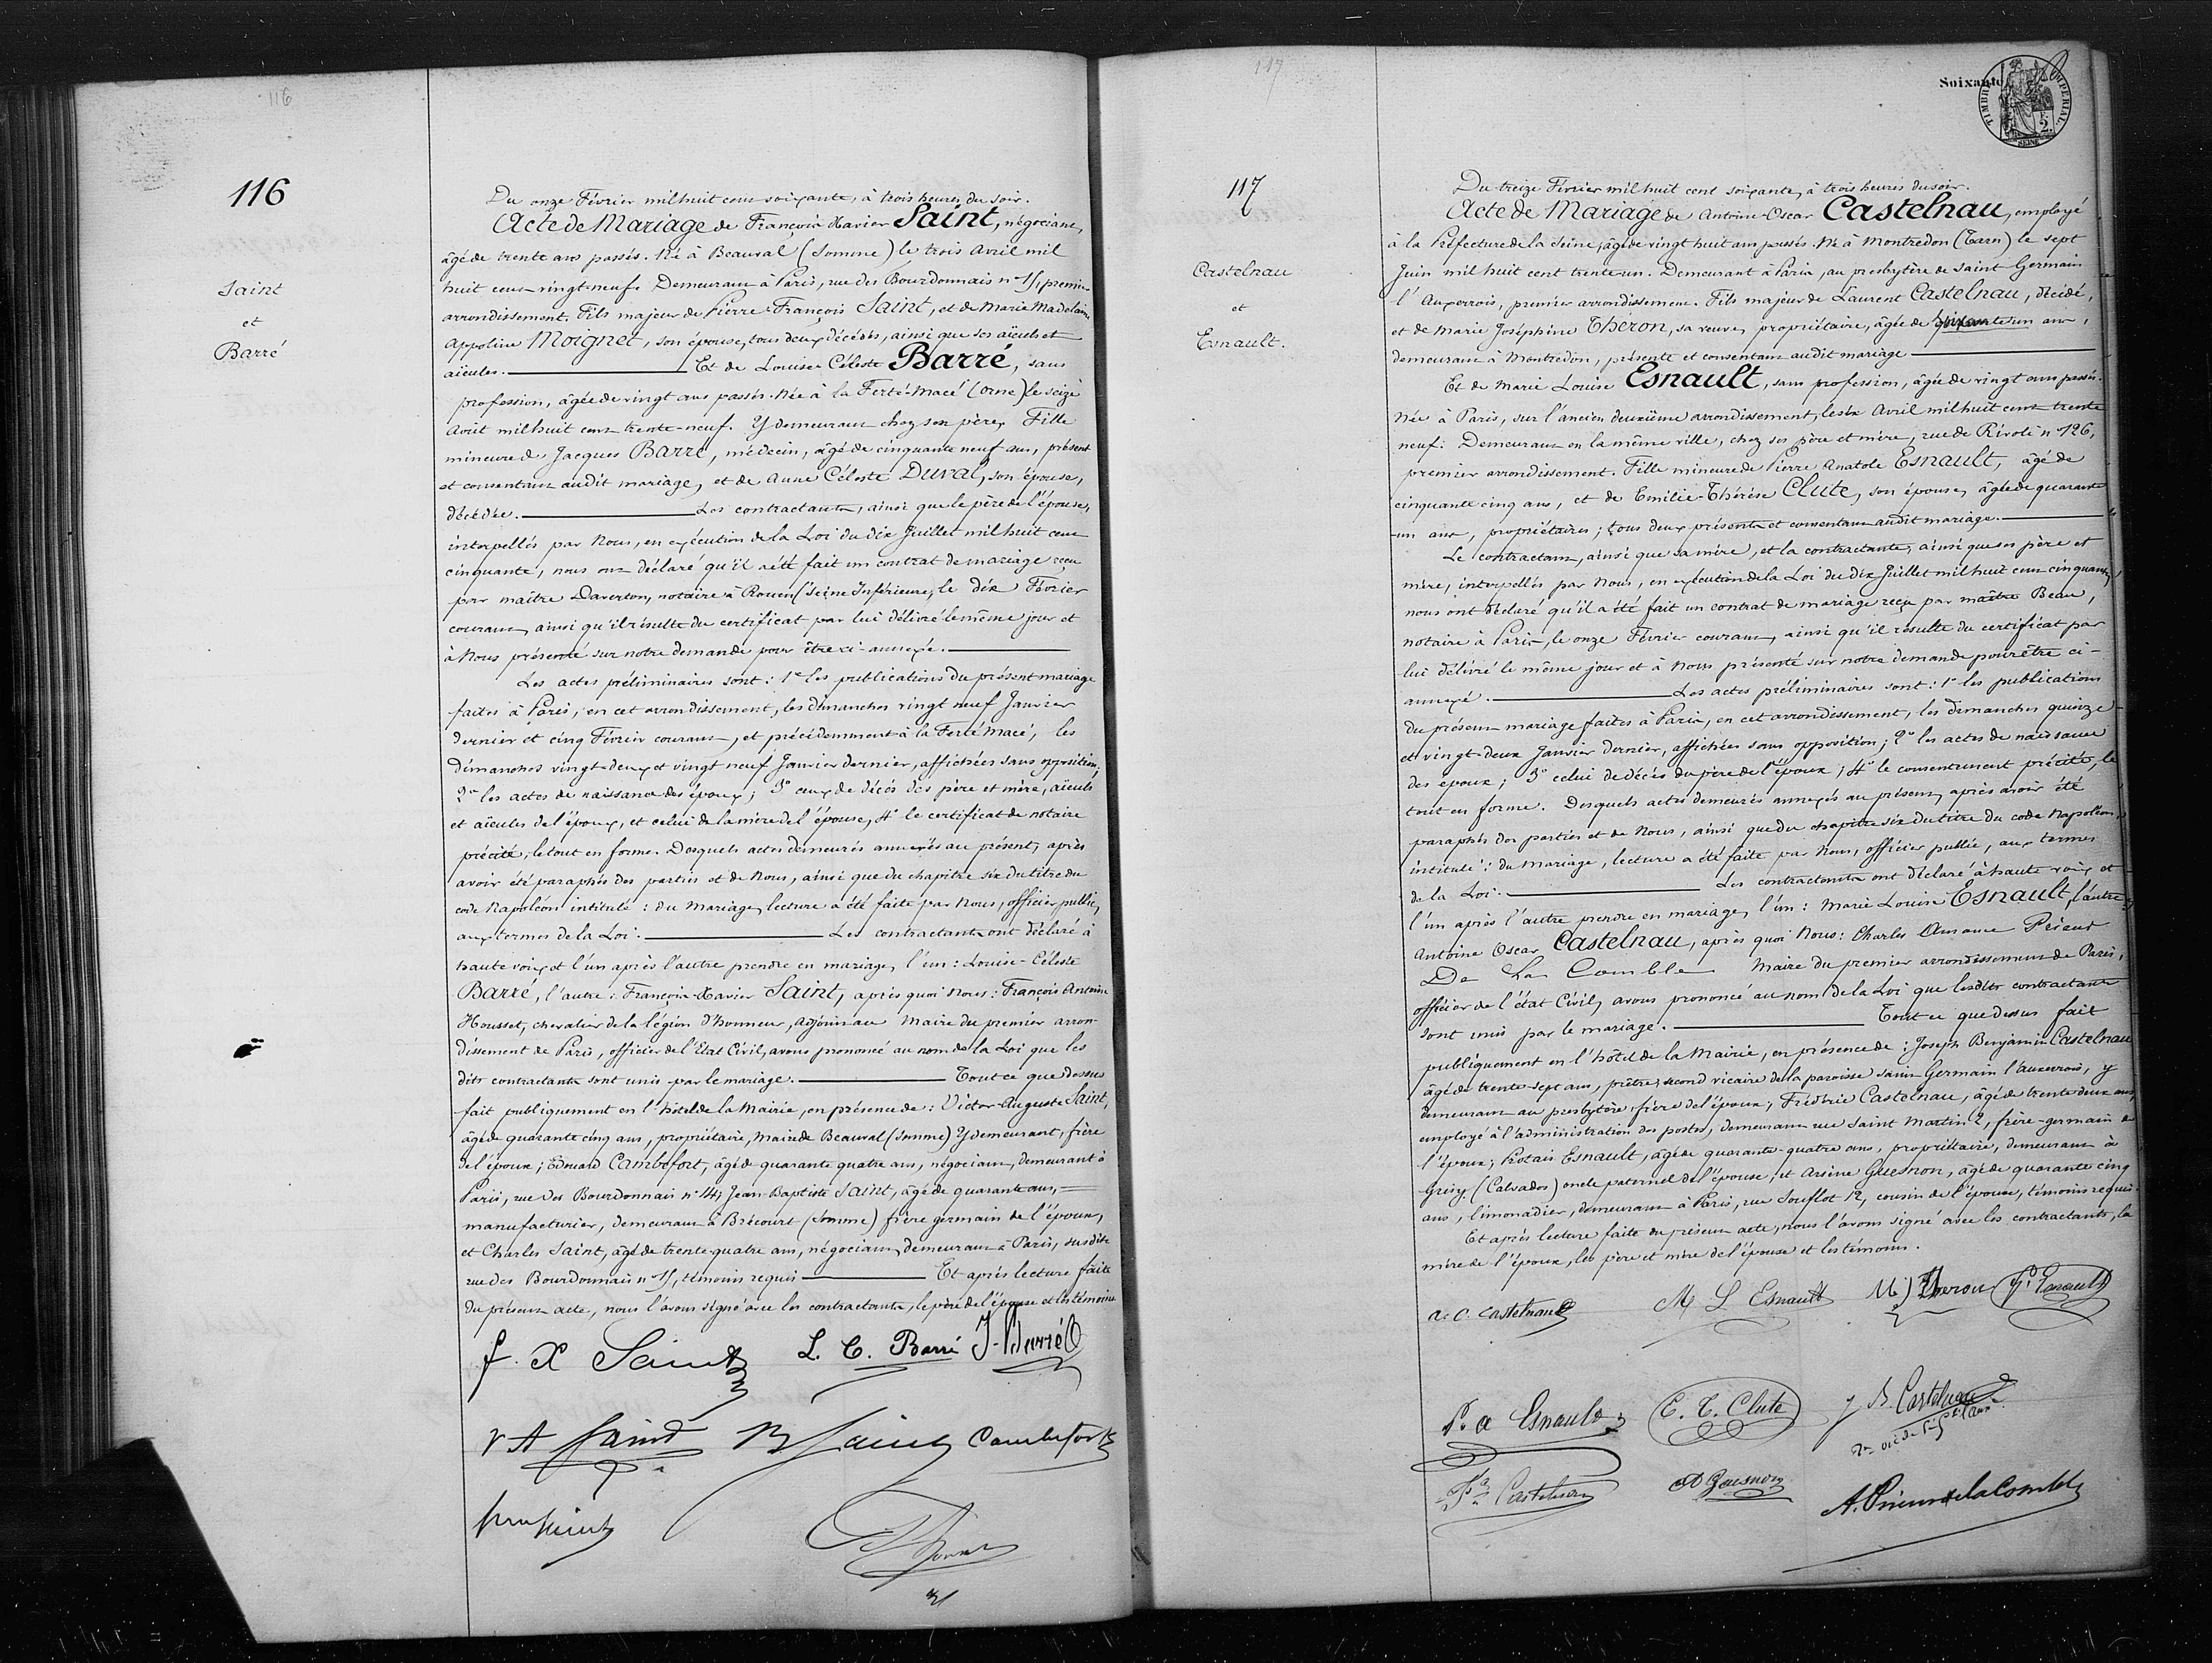 116
116
Saint
et
Barré
Du onze Février mil huit cent soixante, à trois heures du soir.
Acte de Mariage de François Xavier Saint, négociant,
âgé de trente ans passés. Né à Beauval (Somme) le trois Avril mil
huit cent vingt-neuf. Demeurant à Paris, rue des Bourdonnais n° 15, premier
arrondissement. Fils majeur de Pierre François Saint, et de Marie Madelaine
Appoline Moignet, son épouse, tous deux décédés, ainsi que ses aïeuls et
aïeules. Et de Louise Céleste Barré, sans
profession, âgée de vingt ans passés. Née à la Ferté-Macé (Orne) le seize
Août mil huit cent trente-neuf. Y demeurant chez son père. Fille
mineure de Jacques Barré, médecin, âgé de cinquante neuf ans, présent
et consentant audit mariage, et de Anne Céleste Duval, son épouse,
décédée. Les contractants, ainsi que le père de l'épouse,
interpellés par Nous, en exécution de la Loi du dix Juillet mil huit cent
cinquante, nous ont déclaré qu'il a été fait un contrat de mariage reçu
par maître Daverton, notaire à Rouen (Seine Inférieure), le dix Février
courant, ainsi qu'il résulte du certificat par lui délivré le même jour et
à Nous présenté sur notre demande pour être ci-annexé.
Les actes préliminaires sont: 1° les publications du présent mariage
faites à Paris, en cet arrondissement, les dimanches vingt neuf Janvier
dernier et cinq Février courant, et précédemment à la Ferté Macé, les
dimanches vingt-deux et vingt neuf Janvier dernier, affichées sans opposition;
2° les actes de naissance des époux; 3° ceux de décès des père et mère, aïeuls
et aïeules de l'époux, et celui de la mère de l'épouse, 4° le certificat de notaire
précité, le tout en forme. Desquels actes demeurés annexés au présent, après
avoir été paraphés des parties et de Nous, ainsi que du chapitre six du titre du
code Napoléon intitulé: du Mariage, lecture a été faite par Nous, officier public,
aux termes de la Loi. Les contractants ont déclaré à
haute voix et l'un après l'autre prendre en mariage, l'un: Louise-Céleste
Barré, l'autre: François-Xavier Saint, après quoi Nous: François Antoine
Housset, chevalier de la légion d'honneur, Adjoint au Maire du premier arron-
dissement de Paris, officier de l'Etat Civil, avons prononcé au nom de la Loi que les
dits contractants sont unis par le mariage. Tout ce que dessus
fait publiquement en l'hôtel de la Mairie, en présence de: Victor-Auguste Saint,
âgé de quarante cinq ans, propriétaire, Maire de Beauval (Somme) Y demeurant, frère
de l'époux; Edouard Cambefort, âgé de quarante quatre ans, négociant, demeurant à
Paris, rue des Bourdonnais n° 14; Jean-Baptiste Saint, âgé de quarante ans,
manufacturier, demeurant à Brécourt (Somme) frère germain de l'époux,
et Charles Saint, âgé de trente-quatre ans, négociant, demeurant à Paris, susdite
rue des Bourdonnais n° 15, témoins requis Et après lecture faite
du présent acte, nous l'avons signé avec les contractants, le père de l'épouse et les témoins
f. X Saint L. C. Barré J. Barré
V A Saint B Saint Cambefort
117
Soixante
TIMBRE IMPERIAL
2.
SEINE
117
Castelnau
et
Esnault.
Du treize Février mil huit cent soixante, à trois heures du soir.
Acte de Mariage de Antoine-Oscar Castelnau, employé
à la Préfecture de la Seine, âgé de vingt huit ans passés. Né à Montredon (Tarn) le sept
Juin mil huit cent trente-un. Demeurant à Paris, au presbytère de Saint Germain
l'Auxerrois, premier arrondissement. Fils majeur de Laurent Castelnau, décédé,
et de Marie Joséphine Théron, sa veuve, propriétaire, âgée de soixante un ans,
demeurant à Montredon, présente et consentant audit mariage
Et de Marie Louise Esnault, sans profession, âgée de vingt ans passés.
Née à Paris, sur l'ancien deuxième arrondissement, le six Avril mil huit cent trente
neuf. Demeurant en la même ville, chez ses père et mère, rue de Rivoli n° 126,
premier arrondissement. Fille mineure de Pierre Anatole Esnault, âgé de
cinquante cinq ans, et de Emilie-Thérèse Clute, son épouse, âgée de quarante
un ans, propriétaires; tous deux présents et consentant audit mariage.
Le contractant, ainsi que sa mère, et la contractante, ainsi que ses père et
mère, interpellés par Nous, en exécution de la Loi du dix Juillet mil huit cent cinquante,
nous ont déclaré qu'il a été fait un contrat de mariage reçu par maître Beau,
notaire à Paris, le onze Février courant, ainsi qu'il résulte du certificat par
lui délivré le même jour et à Nous présenté sur notre demande pour être ci-
annexé. Les actes préliminaires sont: 1° les publications
du présent mariage faites à Paris, en cet arrondissement, les dimanches quinze
et vingt-deux Janvier dernier, affichées sans opposition; 2° les actes de naissance
des époux; 3° celui de décès du père de l'époux; 4° le consentement précité, le
tout en forme. Desquels actes demeurés annexés au présent, après avoir été
paraphés des parties et de Nous, ainsi que du chapitre six du titre du code Napoléon,
intitulé: du Mariage, lecture a été faite par Nous, officier public, aux termes
de la Loi. Les contractants ont déclaré à haute voix et
l'un après l'autre prendre en mariage, l'un: Marie Louise Esnault, l'autre
Antoine Oscar Castelnau, après quoi Nous: Charles Amance Prieur
De La Comble Maire du premier arrondissement de Paris,
officier de l'état Civil, avons prononcé au nom de la Loi que lesdits contractants
sont unis par le mariage. Tout ce que dessus fait
publiquement en l'hôtel de la Mairie, en présence de: Joseph Benjamin Castelnau
âgé de trente-sept ans, prêtre, second vicaire de la paroisse Saint Germain l'Auxerrois, y
demeurant au presbytère, frère de l'époux; Frédéric Castelnau, âgé de trente deux ans,
employé à l'administration des postes, demeurant rue Saint Martin 2, frère-germain de
l'époux; Protais Esnault, âgé de quarante-quatre ans, propriétaire, demeurant à
Grisy (Calvados) oncle paternel de l'épouse, et Arsène Guesnon, âgé de quarante cinq
ans, limonadier, demeurant à Paris, rue Soufflot 12, cousin de l'épouse, témoins requis.
Et après lecture faite du présent acte, nous l'avons signé avec les contractants, la
mère de l'époux, les père et mère de l'épouse et les témoins.
A. O. Castelnau M L Esnault M J Theron P. Esnault
P. A Esnault E. T. Clute J B. Castelnau
Castelnau A Guesnon A. Prieur de la Comble